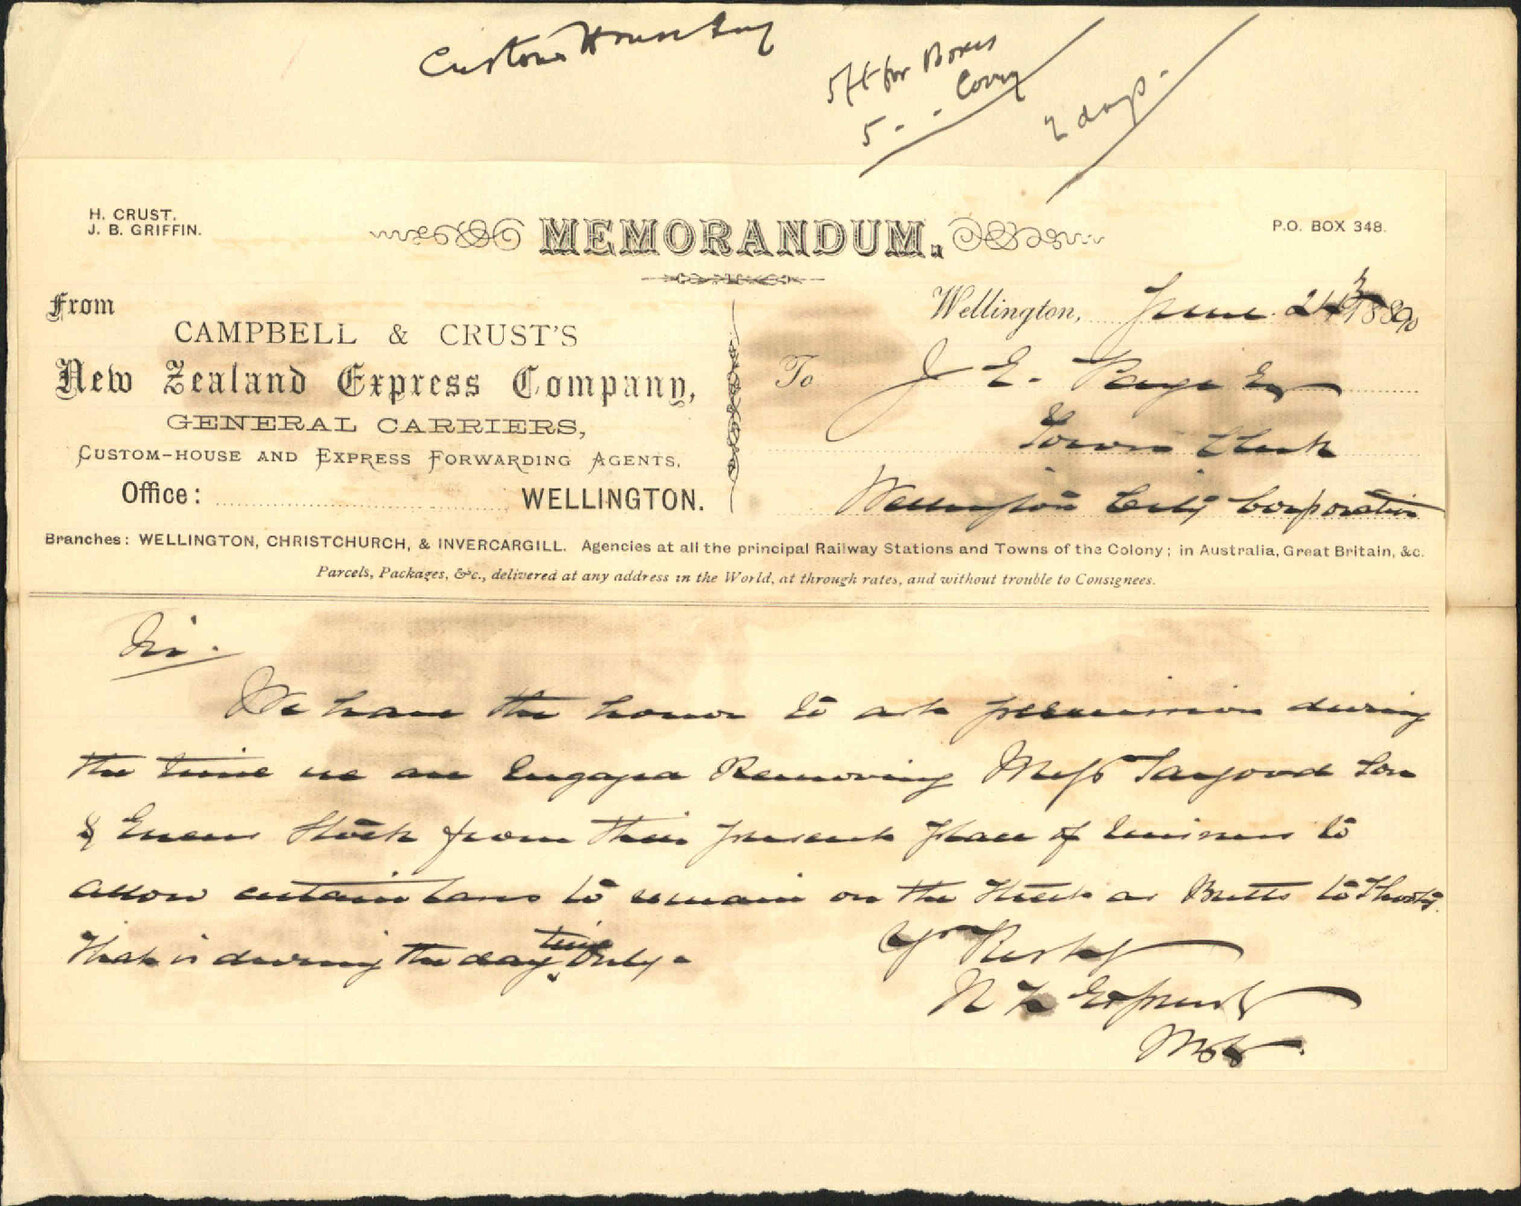 Custom House Quay
5ft for Boxes
5 - - Cover
2 days.
H. CRUST.
J. B. GRIFFIN.
MEMORANDUM.
P.O. BOX 348.
From
CAMPBELL & CRUST'S
New Zealand Express Company,
GENERAL CARRIERS,
CUSTOM-HOUSE AND EXPRESS FORWARDING AGENTS.
Office: WELLINGTON.
Wellington, June 24 1890
To J. E. Page Esq
Town Clerk
Wellington City Corporation
Branches: WELLINGTON, CHRISTCHURCH, & INVERCARGILL. Agencies at all the principal Railway Stations and Towns of the Colony; in Australia, Great Britain, &c.
Parcels, Packages, &c., delivered at any address in the World, at through rates, and without trouble to Consignees.
Sir.
We have the honor to ask permission during
the time we are Engaged Removing Messrs Sargood Son
& Ewens Stock from their present place of business to
allow certain to remain on the Street as to
That is during the day time Only.
Yrs
N Z Express Co